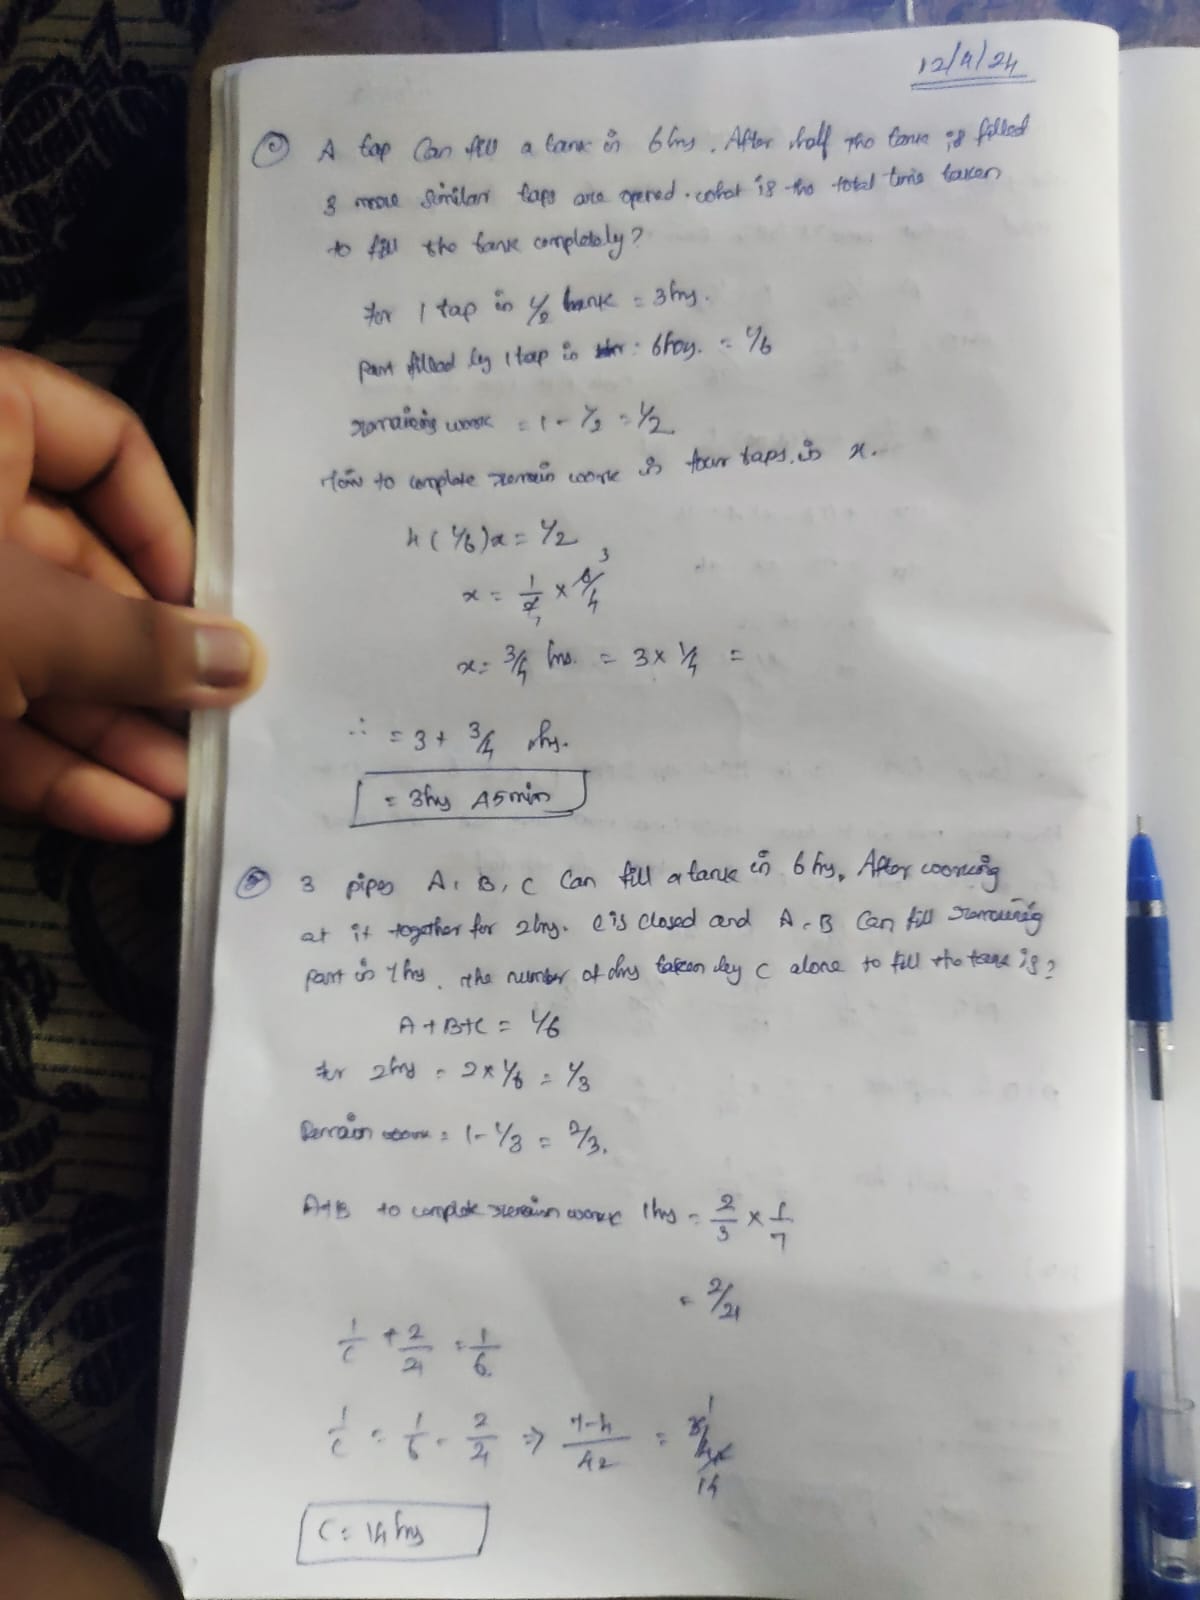 12/4/24
① A tap Can fill a tank in 6hrs. After half the tank is filled
3 more similar taps are opened. what is the total time taken
to fill the tank completely?
For 1 tap in 1/2 tank = 3hrs.
Part filled by 1 tap in 6hrs. = 1/6
remaining work = 1 - 1/2 = 1/2
Now to complete remain work is four taps in x.
4 (1/6)x = 1/2
x = 1/2 x 6/4 3
x = 3/4 hrs. = 3 x 1/4 =
∴ = 3 + 3/4 hrs.
= 3hrs 45min
3 pipes A, B, C Can fill a tank in 6hrs, After working
at it together for 2hrs. C is closed and A, B Can fill remaining
part in 7hrs. The number of hrs taken by C alone to fill the tank is?
A+B+C = 1/6
for 2hrs = 2 x 1/6 = 1/3
Remain work = 1 - 1/3 = 2/3.
A+B to complete remain work 1hrs = 2/3 x 1/7
= 2/21
1/C + 2/21 = 1/6
1/C = 1/6 - 2/21 => 7-4/42 = 3/42 1/14
C = 14hrs